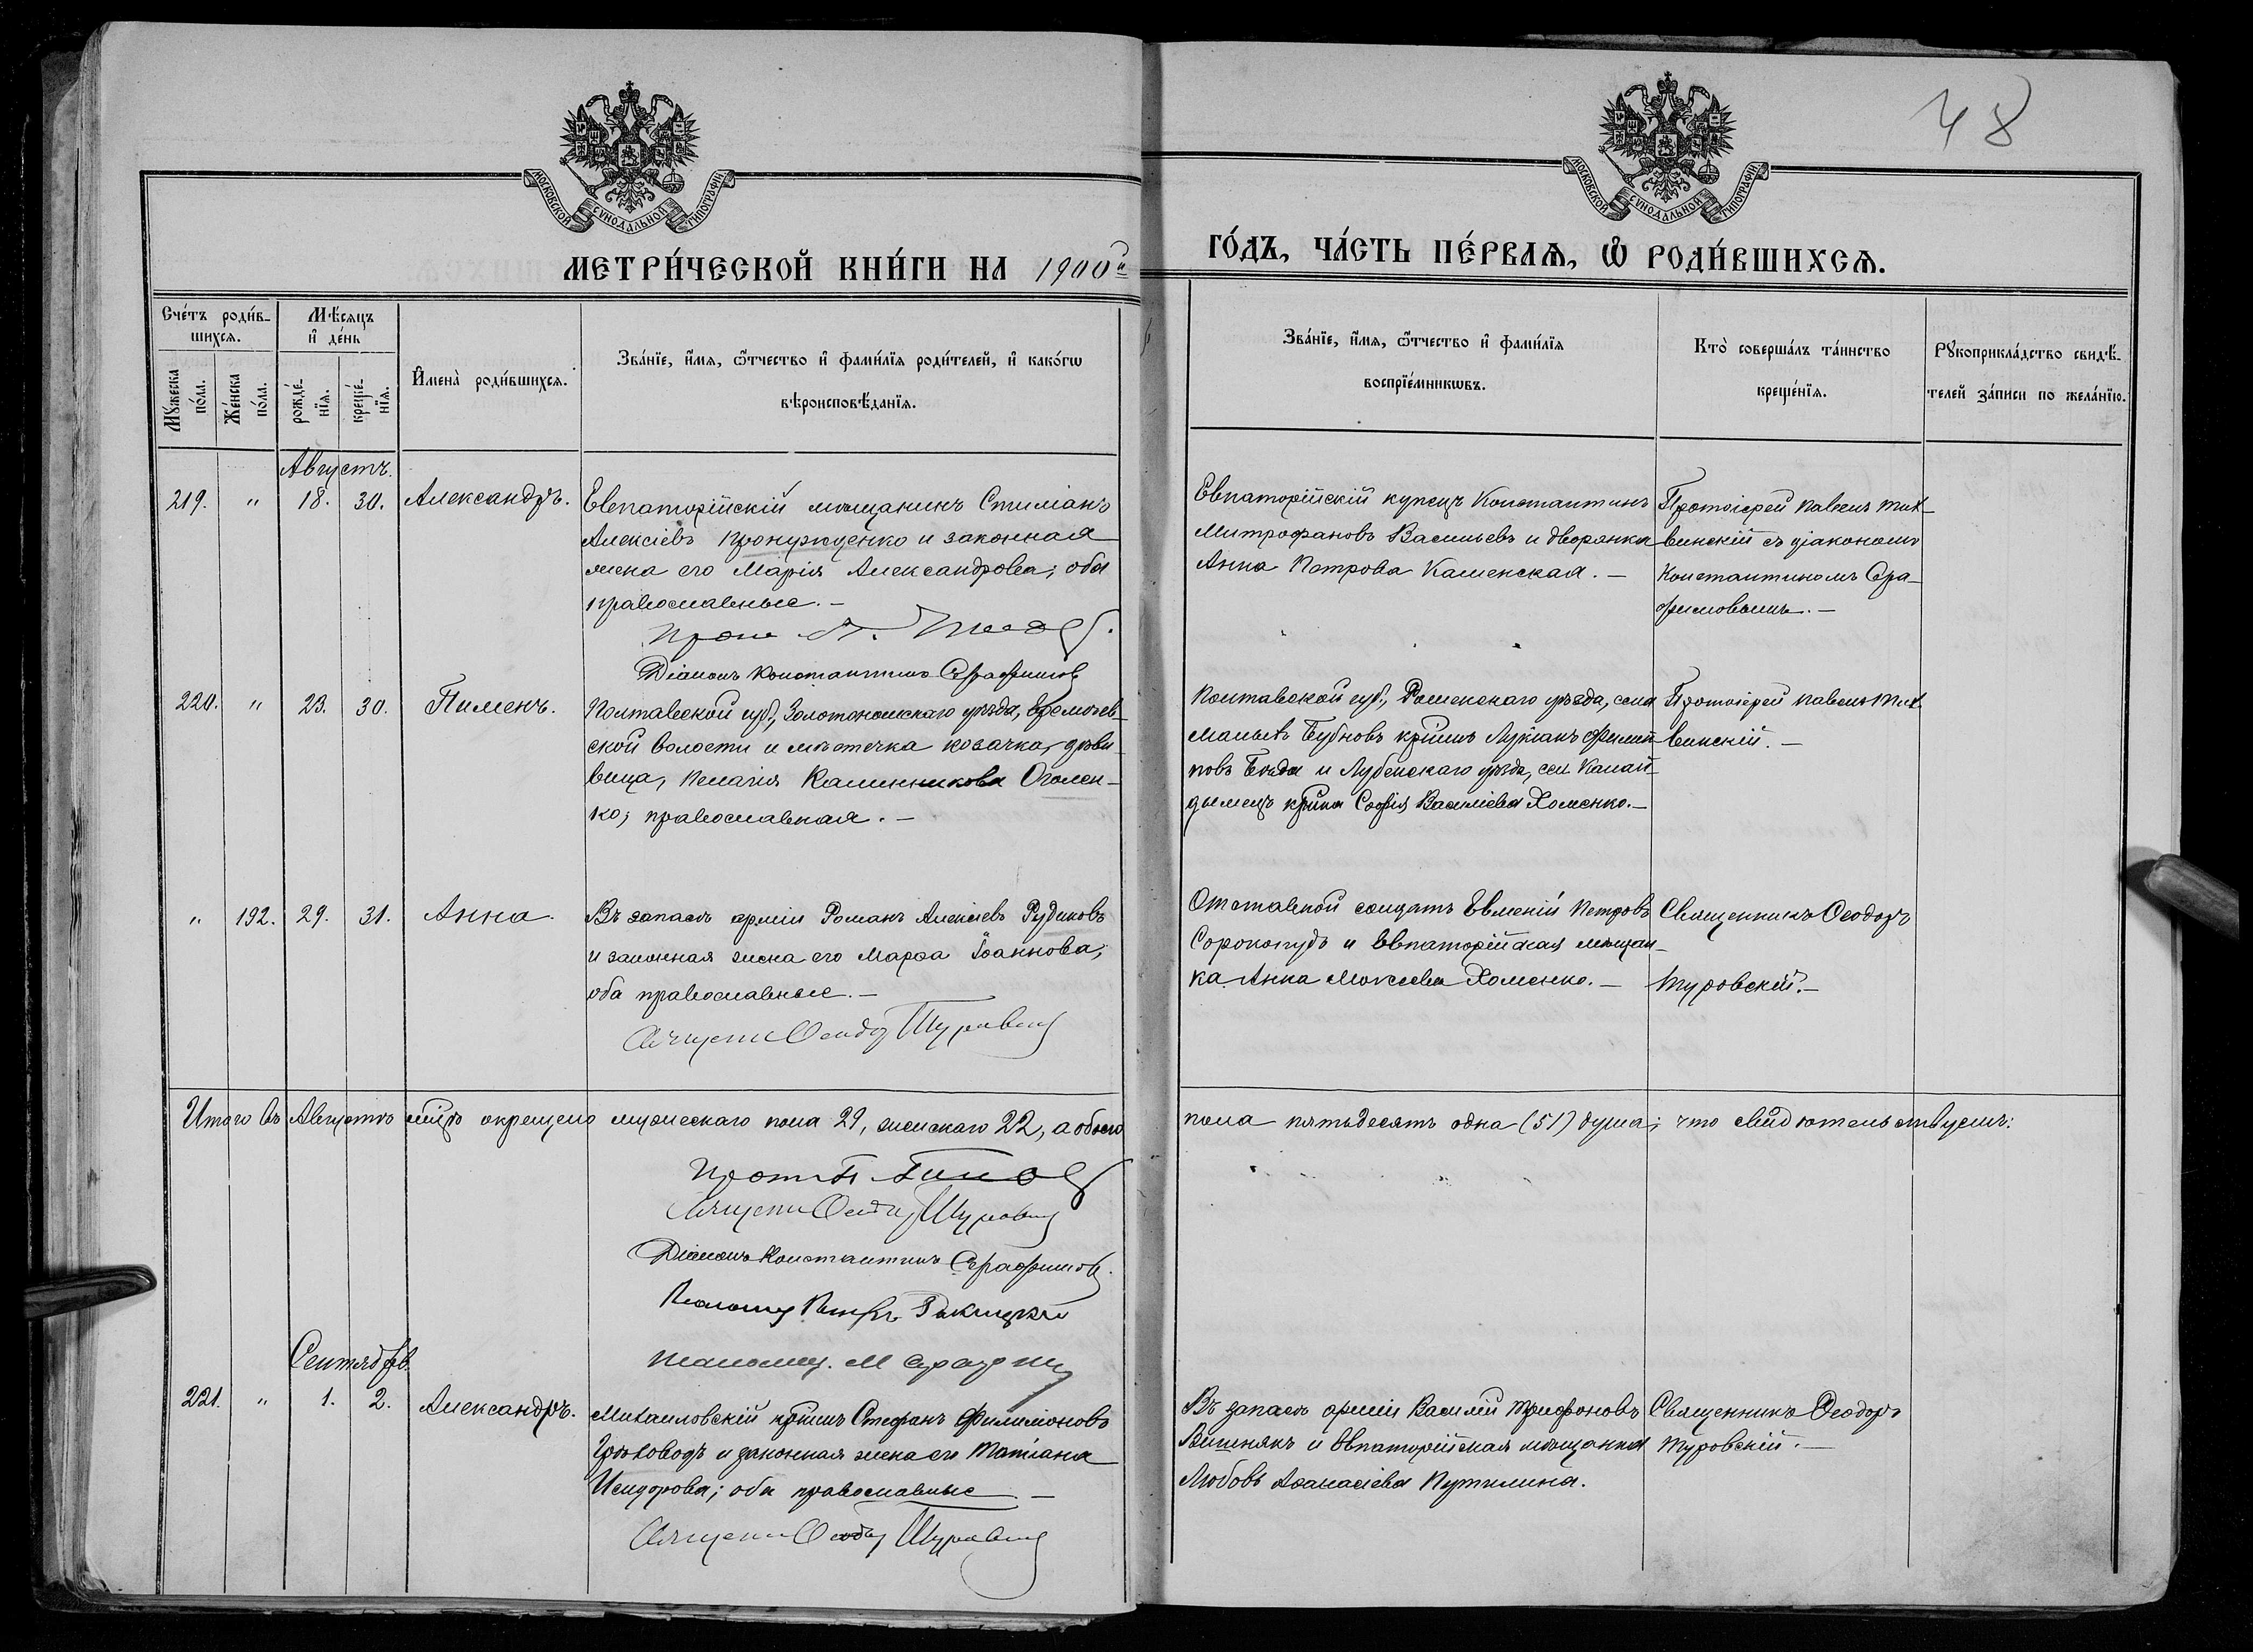 48
МОСКОВСКОЙ СУНОДАЛЬНОЙ ТИПОГРАФІИ
МОСКОВСКОЙ СУНОДАЛЬНОЙ ТИПОГРАФІИ
МЕТРИ́ЧЕСКОЙ КНИ́ГИ НА 1900й
ГО́ДЪ, ЧА́СТЬ ПЕ́РВАѦ, Ѡ҆ РОДИ́ВШИХСѦ.
Сче́тъ роди́в-
шихсѧ.
Мꙋ́жеска по́ла.
Же́нска по́ла.
Мѣ́сѧцъ
и҆ де́нь
рожде́-нїѧ.
креще́-нїѧ.
И҆мена̀ роди́вшихсѧ.
Зва́нїе, и҆́мѧ, ѻ҆́тчество и҆ фами́лїѧ роди́телей, и҆ како́гѡ
вѣроисповѣ́данїѧ.
Зва́нїе, и҆́мѧ, ѻ҆́тчество и҆ фами́лїѧ
воспрїе́мникѡвъ.
Кто̀ соверша́лъ та́инство
креще́нїѧ.
Рꙋкоприкла́дство свидѣ́-
телей за́писи по жела́нїю.
Августъ.
219. " 18. 30. Александръ.
Евпаторійскій мѣщанинъ Стиліанъ
Алексіевъ Пронужденко и законная
жена его Марія Александрова; оба
православные. –
Прот. П.
Діаконъ Константинъ Серафимовъ
Евпаторійскій купецъ Константинъ
Митрофановъ Васильевъ и дворянка
Анна Петрова Каменская. –
Протоіерей Павелъ Тих-
винскій съ діакономъ
Константиномъ Сера-
фимовымъ. –
220. " 23. 30. Пименъ.
Полтавской губ., Золотоношскаго уѣзда,
ской волости и мѣстечка козачка, дѣви-
вица, Пелагія Калинникова Оголен-
ко; православная. –
Полтавской губ., Роменскаго уѣзда, села
Малыхъ Бубновъ кр-нинъ Лукіанъ Филип-
повъ и Лубенскаго уѣзда, сел.
кр-нка Софія Василіева Хоменко. –
Протоіерей Павелъ Тих-
винскій. –
" 192. 29. 31. Анна.
Въ запасѣ арміи Романъ Алексіевъ Рудиковъ
и законная жена его Марѳа Іоаннова;
оба православные. –
Священ. Ѳеодоръ Туровскій
Отставной солдатъ Евменій Петровъ
Сорокопудъ и Евпаторійская мѣщан-
ка Анна Моисеева Хоменко. –
Священникъ Ѳеодоръ
Туровскій. –
Итого въ Августѣ мѣс-цѣ окрещено мужескаго пола 29, женскаго 22, а обоего
пола пятьдесятъ одна (51) душа; что свидѣтельствуемъ:
Прот. П.
Священ. Ѳеодоръ Туровскій
Діаконъ Константинъ Серафимовъ.
Псаломщ. Петръ
Псаломщ. М
Сентябрь.
221. " 1. 2. Александръ.
Михайловскій кр-нинъ Стефанъ Филимоновъ
и законная жена его Татіана
Исидорова; оба православные –
Священ. Ѳеодоръ Туровскій
Въ запасѣ арміи Василій Трифоновъ
Вишнякъ и Евпаторійская мѣщанка
Любовь Аѳанасіева Путилина.
Священникъ Ѳеодоръ
Туровскій. –